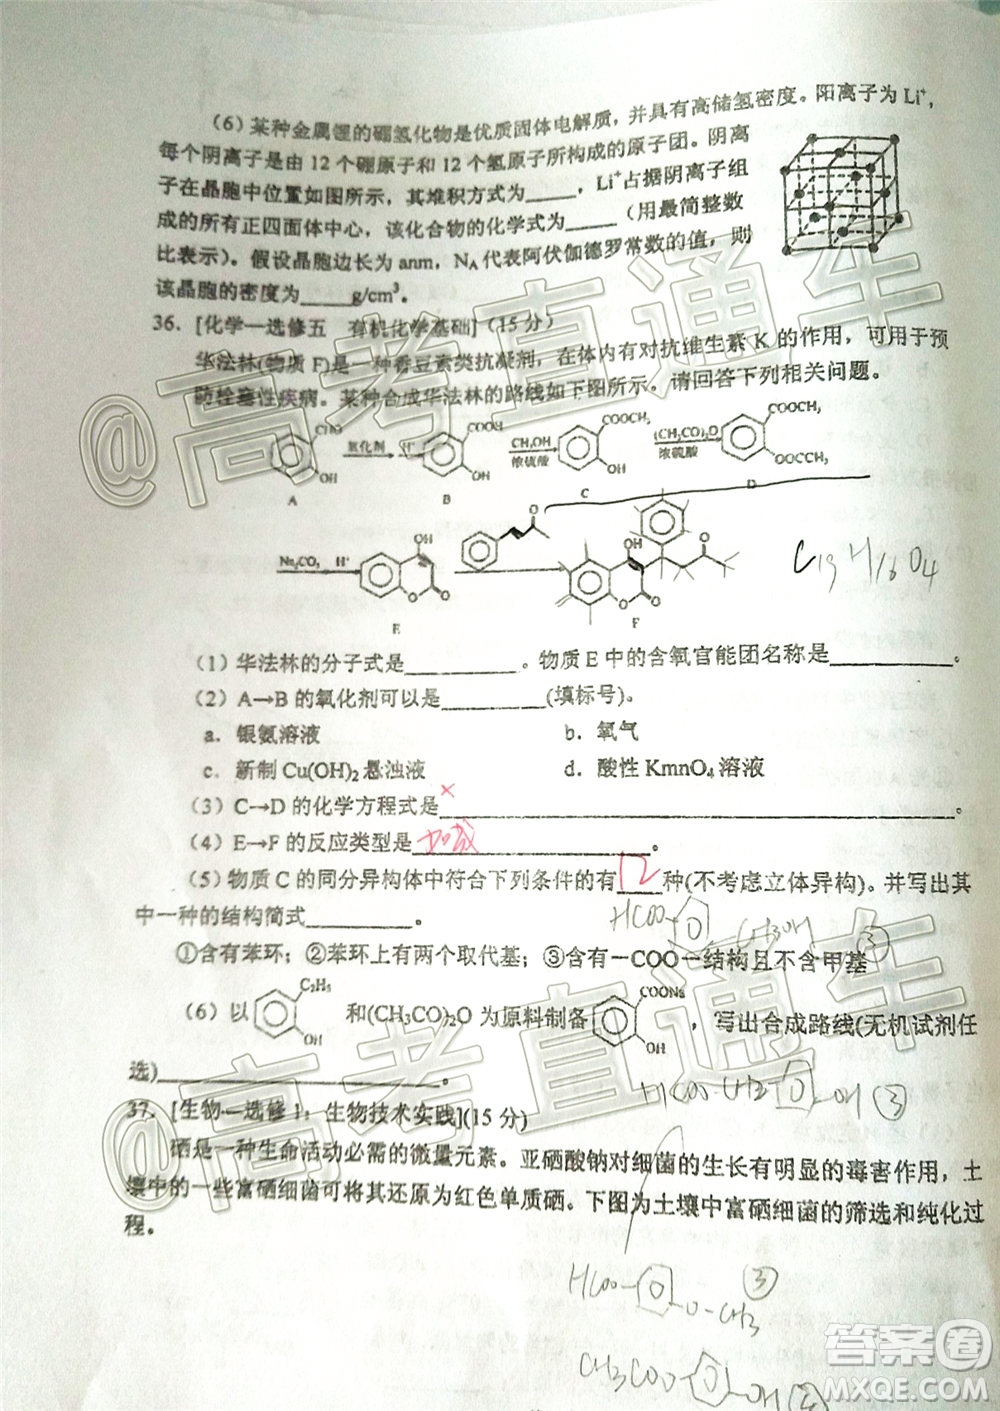 (6)某种金属锂的硼氢化物是优质固体电解质，并具有高储氢密度。阳离子为 Li⁺，
每个阴离子是由 12 个硼原子和 12 个氢原子所构成的原子团。阴离
子在晶胞中位置如图所示，其堆积方式为_____，Li⁺占据阴离子组
成的所有正四面体中心，该化合物的化学式为_____（用最简整数
比表示）。假设晶胞边长为 anm，Nᴀ 代表阿伏伽德罗常数的值，则
该晶胞的密度为_____g/cm³。
36．[化学—选修五 有机化学基础]（15 分）
华法林(物质 F)是一种香豆素类抗凝剂，在体内有对抗维生素 K 的作用，可用于预
防栓塞性疾病。某种合成华法林的路线如下图所示。请回答下列相关问题。
CHO OH A
氧化剂 H⁺
COOH OH B
CH₃OH 浓硫酸
COOCH₃ OH C
(CH₃CO)₂O 浓硫酸
COOCH₃ OOCCH₃ D
Na₂CO₃ H⁺
OH O O E
O
OH O O O F
C19H16O4
（1）华法林的分子式是__________。物质 E 中的含氧官能团名称是__________。
（2）A→B 的氧化剂可以是_________(填标号)。
a．银氨溶液 b．氧气
c．新制 Cu(OH)₂ 悬浊液 d．酸性 KmnO₄ 溶液
（3）C→D 的化学方程式是__________。
×
（4）E→F 的反应类型是 加成 。
（5)物质 C 的同分异构体中符合下列条件的有 12 种(不考虑立体异构)。并写出其
中一种的结构简式_________。
HCOO CH2OH ③
①含有苯环；②苯环上有两个取代基；③含有—COO—结构且不含甲基
（6）以 C₂H₅ OH 和(CH₃CO)₂O 为原料制备 COONa OH ，写出合成路线(无机试剂任
选)__________。
HCOO-CH2 OH ③
37．[生物—选修 1：生物技术实践](15 分)
硒是一种生命活动必需的微量元素。亚硒酸钠对细菌的生长有明显的毒害作用，土
壤中的一些富硒细菌可将其还原为红色单质硒。下图为土壤中富硒细菌的筛选和纯化过
程。
HCOO O-CH3 ③
CH3COO OH
@高考直通车
@高考直通车
答案圈
MXQE.COM